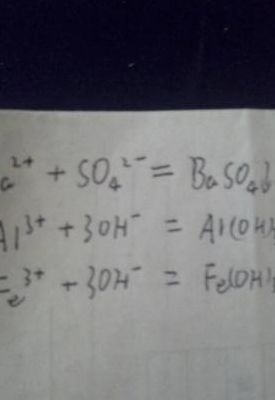 a²⁺ + SO₄²⁻ = BaSO₄↓
Al³⁺ + 3OH⁻ = Al(OH)
Fe³⁺ + 3OH⁻ = Fe(OH)